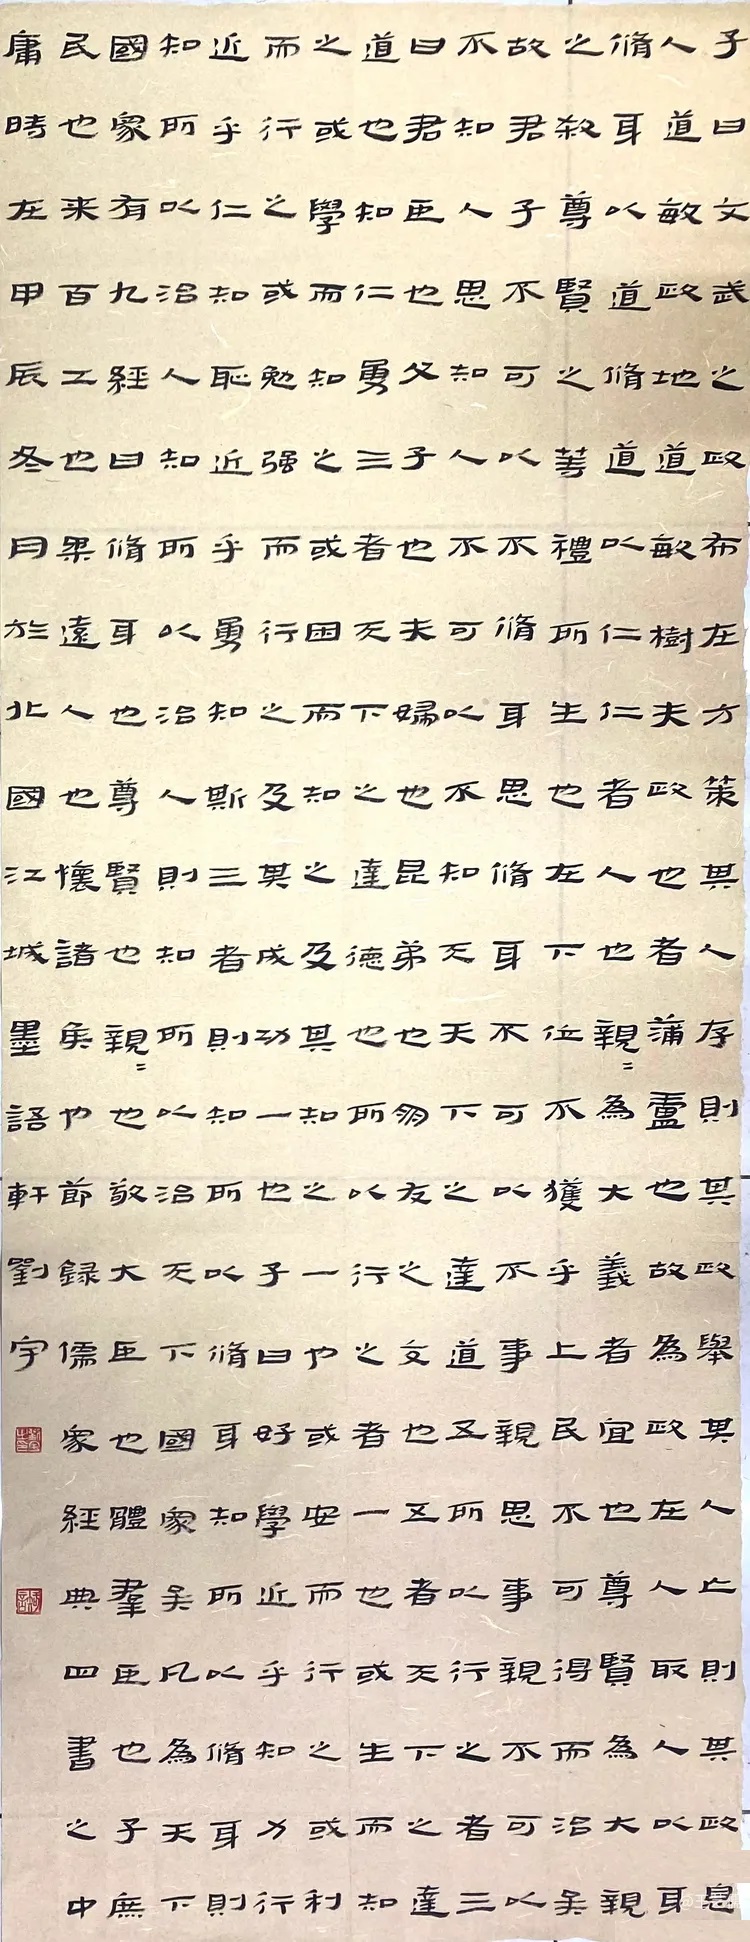 子曰文武之政布在方策其人存則其政舉其人亡則其政息
人道敏政地道敏樹夫政也者蒲盧也故為政在人取人以身
脩身以道脩道以仁仁者人也親〻為大義者宜也尊賢為大親
之殺尊賢之等禮所生也在下位不獲乎上民不可得而治矣
故君子不可以不脩身思脩身不可以不事親思事親不可以
不知人思知人不可以不知天天下之達道五所以行之者三
曰君臣也父子也夫婦也昆弟也朋友之交也五者天下之達
道也知仁勇三者天下之達德也所以行之者一也或生而知
之或學而知之或困而知之及其知之一也或安而行之或利
而行之或勉强而行之及其成功一也子曰好學近乎知力行
近乎仁知恥近乎勇知斯三者則知所以脩身知所以脩身則
知所以治人知所以治人則知所以治天下國家矣凡為天下
國家有九經曰脩身也尊賢也親〻也敬大臣也體羣臣也子庶
民也来百工也柔遠人也懷諸矦也節錄儒家經典四書之中
庸時在甲辰冬月於北國江城墨語軒劉宇